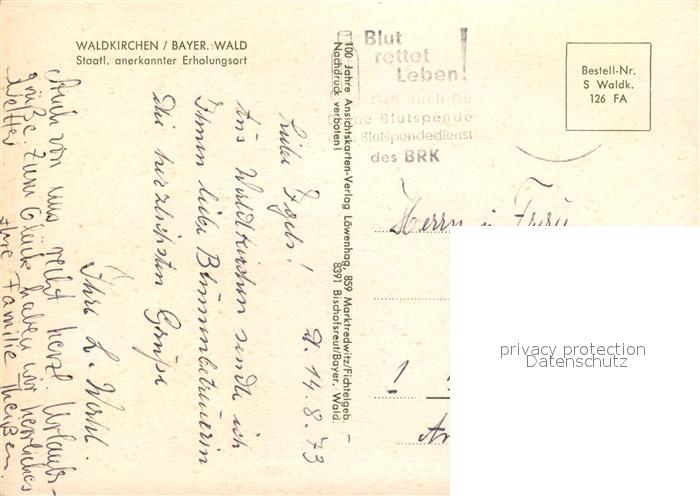 WALDKIRCHEN / BAYER. WALD
Staatl. anerkannter Erholungsort
d. 14.8.73
Liebe
Aus Waldkirchen sende ich
Ihnen liebe Blumenbetreuerin
die herzlichsten Grüße
Ihre L. Wohl.
Auch von uns recht herzl. Urlaubs-
grüße. Zum Glück haben wir herrliches
Wetter
Ihre Familie
100 Jahre Ansichtskarten-Verlag Löwenhag, 859 Marktredwitz/Fichtelgeb.
Nachdruck verboten! 8391 Bischofsreut/Bayer. Wald.
Blut
rettet
Leben!
Geb auch Du
eine Blutspende
Blutspendedienst
des BRK
Bestell-Nr.
S Waldk.
126 FA
Herrn u. Frau
1
privacy protection
Datenschutz